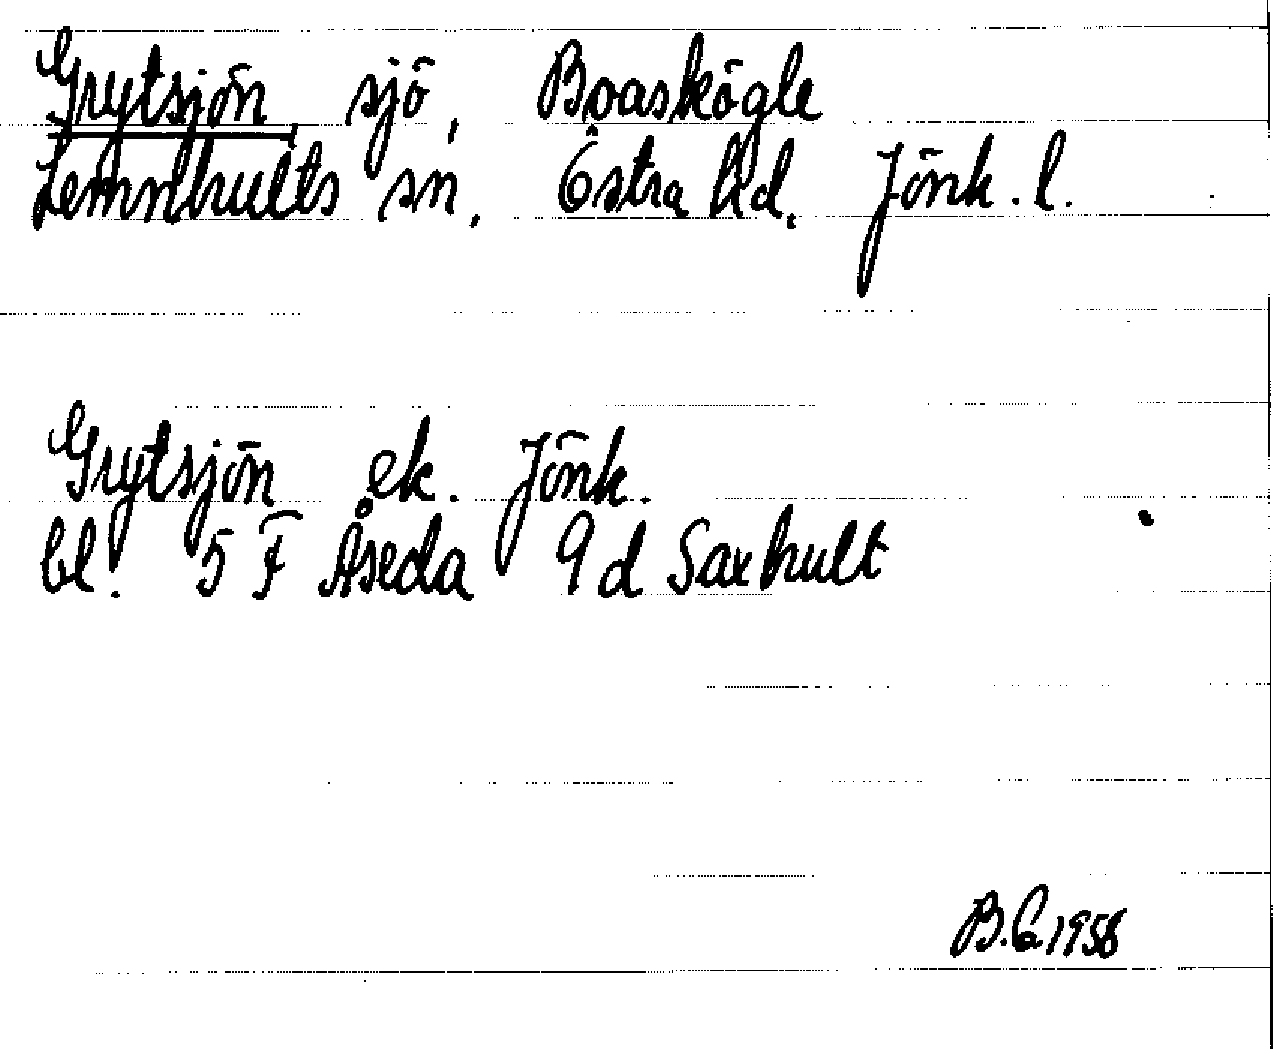 Grytsjön, sjö, Boaskögle
Lemnhults sn. Östra hd. Jönk. l.
Grytsjön ek. Jönk.
bl. 5 F Åseda 9 d Saxhult
B. 1958